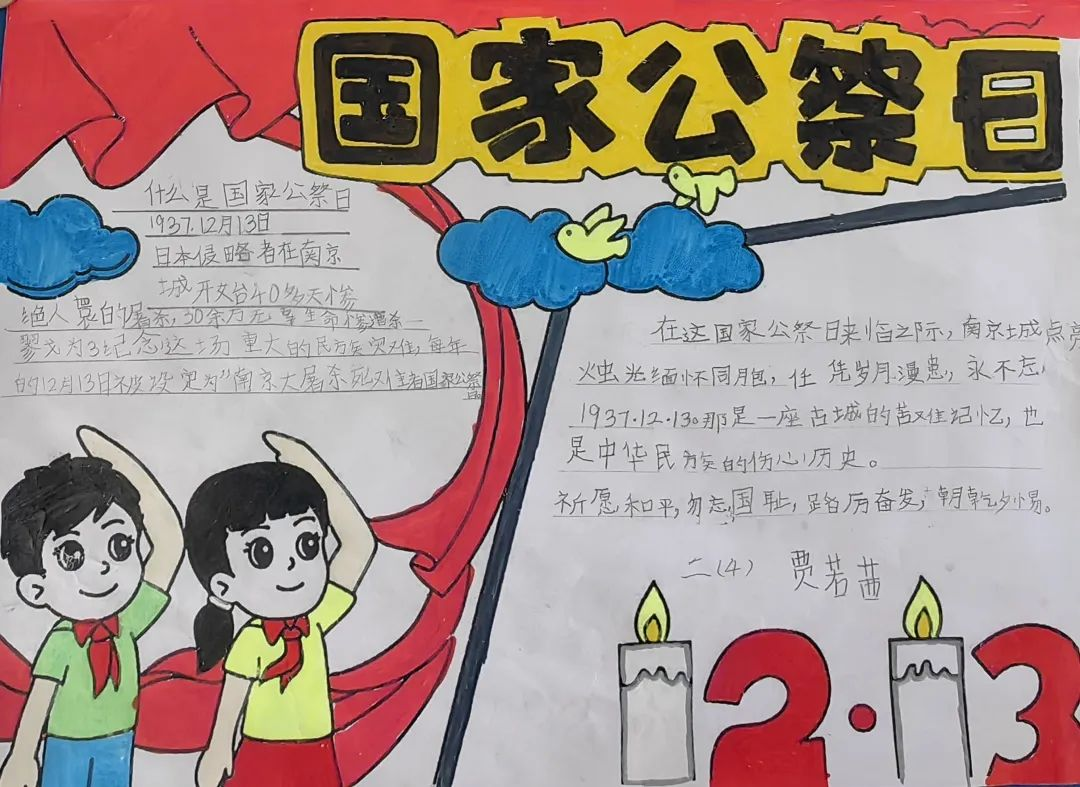 国家公祭日
什么是国家公祭日
1937.12月13日
日本侵略者在南京
城开始40多天惨
绝人寰的屠杀,30余万无辜生命惨遭杀
纪念这场重大的民族灾难,每年
的12月13日被设定为"南京大屠杀死难者国家公祭
日
在这国家公祭日来临之际,南京城点亮
烛光缅怀同胞,任凭岁月漫患,永不忘,
1937.12.13。那是一座古城的苦难记忆,也
是中华民族的伤心历史。
祈愿和平,勿忘国耻,踔厉奋发,朝乾夕惕。
二(4) 贾若茜
12·13